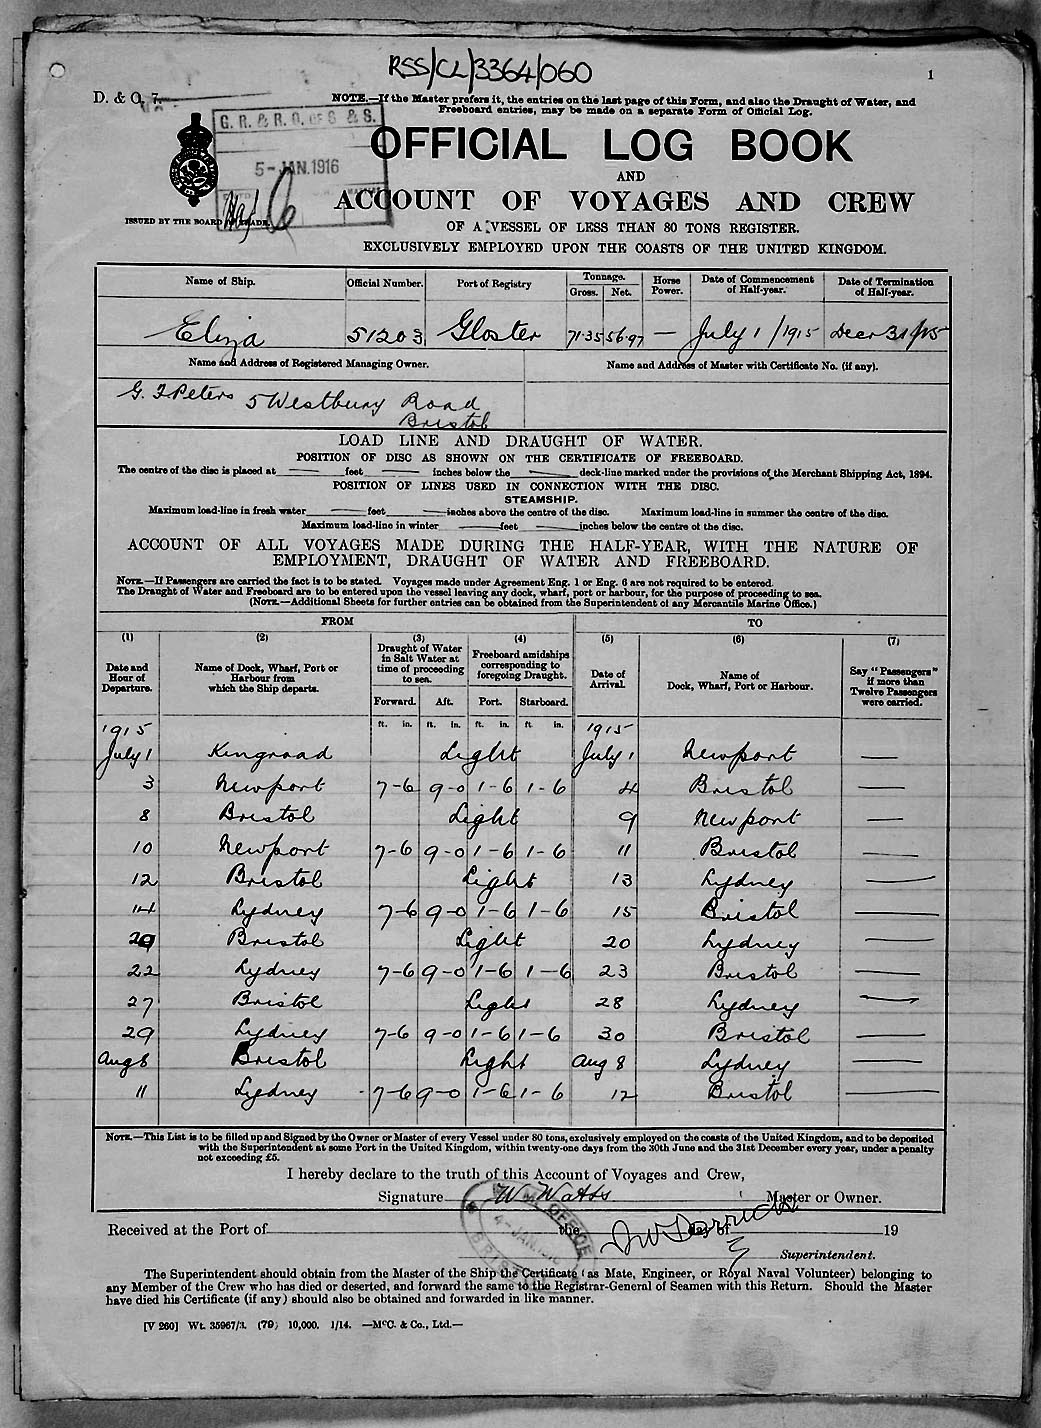 RSS/CL/3364/060
1
D. & O. 7.
NOTE.—If the Master prefers it, the entries on the last page of this Form, and also the Draught of Water, and
Freeboard entries, may be made on a separate Form of Official Log.
G. R. & R. O. OF S & S.
5-JAN.1916
OFFICIAL LOG BOOK
AND
ACCOUNT OF VOYAGES AND CREW
ISSUED BY THE BOARD OF TRADE.
OF A VESSEL OF LESS THAN 80 TONS REGISTER.
EXCLUSIVELY EMPLOYED UPON THE COASTS OF THE UNITED KINGDOM.
Name of Ship. Official Number. Port of Registry Tonnage. Gross. Net. Horse Power. Date of Commencement of Half-year. Date of Termination of Half-year.
Eliza 51203 Gloster 71.35 56.97 — July 1/1915 Decr 31/15
Name and Address of Registered Managing Owner. Name and Address of Master with Certificate No. (if any).
G. F Peters 5 Westbury Road
Bristol
LOAD LINE AND DRAUGHT OF WATER.
POSITION OF DISC AS SHOWN ON THE CERTIFICATE OF FREEBOARD.
The centre of the disc is placed at — feet — inches below the — deck-line marked under the provisions of the Merchant Shipping Act, 1894.
POSITION OF LINES USED IN CONNECTION WITH THE DISC.
STEAMSHIP.
Maximum load-line in fresh water — feet — inches above the centre of the disc. Maximum load-line in summer the centre of the disc.
Maximum load-line in winter — feet — inches below the centre of the disc.
ACCOUNT OF ALL VOYAGES MADE DURING THE HALF-YEAR, WITH THE NATURE OF
EMPLOYMENT, DRAUGHT OF WATER AND FREEBOARD.
NOTE.—If Passengers are carried the fact is to be stated. Voyages made under Agreement Eng. 1 or Eng. 6 are not required to be entered.
The Draught of Water and Freeboard are to be entered upon the vessel leaving any dock, wharf, port or harbour, for the purpose of proceeding to sea.
(NOTE.—Additional Sheets for further entries can be obtained from the Superintendent of any Mercantile Marine Office.)
FROM TO
(1) (2) (3) (4) (5) (6) (7)
Date and Hour of Departure. Name of Dock, Wharf, Port or Harbour from which the Ship departs. Draught of Water in Salt Water at time of proceeding to sea. Freeboard amidships corresponding to foregoing Draught. Date of Arrival. Name of Dock, Wharf, Port or Harbour. Say "Passengers" if more than Twelve Passengers were carried.
Forward. Aft. Port. Starboard.
ft. in. ft. in. ft. in. ft. in.
1915 1915
July 1 Kingroad Light July 1 Newport —
3 Newport 7-6 9-0 1-6 1-6 4 Bristol —
8 Bristol Light 9 Newport —
10 Newport 7-6 9-0 1-6 1-6 11 Bristol —
12 Bristol Light 13 Lydney —
14 Lydney 7-6 9-0 1-6 1-6 15 Bristol —
20 Bristol Light 20 Lydney —
22 Lydney 7-6 9-0 1-6 1-6 23 Bristol —
27 Bristol Light 28 Lydney —
29 Lydney 7-6 9-0 1-6 1-6 30 Bristol —
Aug 8 Bristol Light Aug 8 Lydney —
11 Lydney 7-6 9-0 1-6 1-6 12 Bristol —
NOTE.—This List is to be filled up and Signed by the Owner or Master of every Vessel under 80 tons, exclusively employed on the coasts of the United Kingdom, and to be deposited
with the Superintendent at some Port in the United Kingdom, within twenty-one days from the 30th June and the 31st December every year, under a penalty
not exceeding £5.
I hereby declare to the truth of this Account of Voyages and Crew,
Signature W Watts Master or Owner.
Received at the Port of the day of 19
Superintendent.
The Superintendent should obtain from the Master of the Ship the Certificate (as Mate, Engineer, or Royal Naval Volunteer) belonging to
any Member of the Crew who has died or deserted, and forward the same to the Registrar-General of Seamen with this Return. Should the Master
have died his Certificate (if any) should also be obtained and forwarded in like manner.
[V 260] Wt. 35967/3. (79) 10,000. 1/14. —McC. & Co., Ltd.—